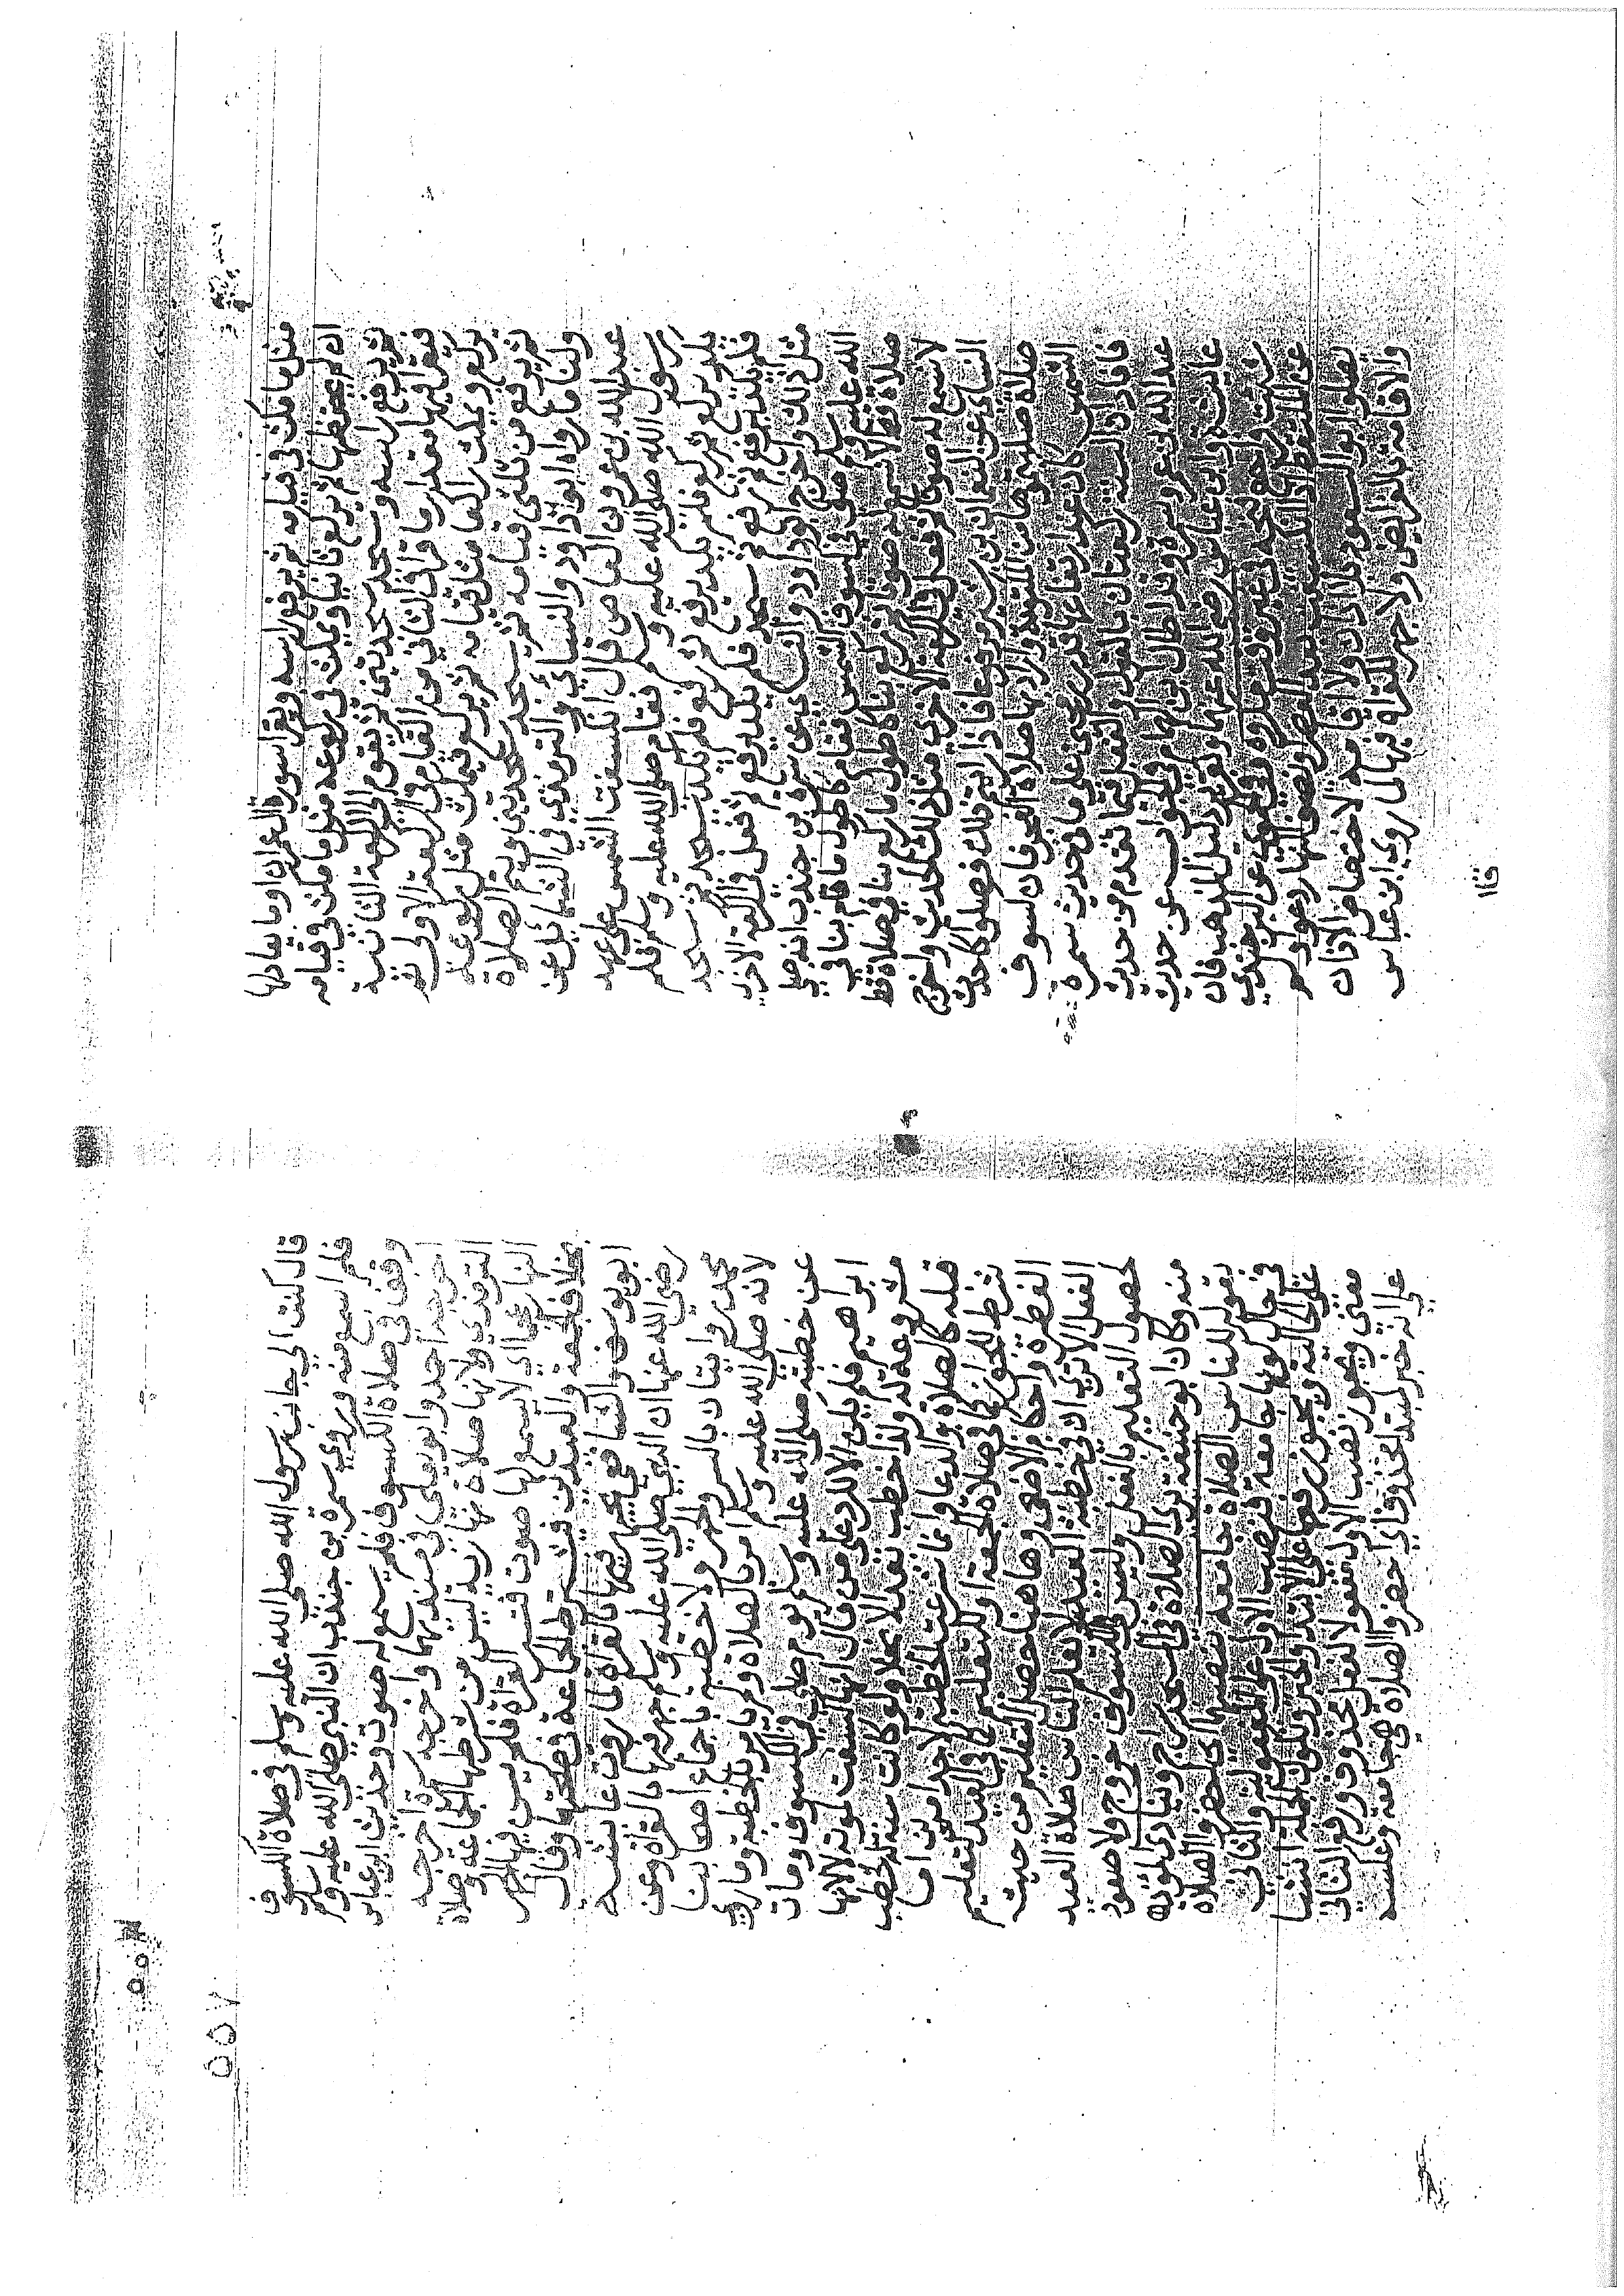 مثل ما مكث في قيامه ثم يرفع راسه ويقرا سورة ال عمران او ما يعادلها
ان لم يحفظها ثم يركع ثانيا ويمكث في ركوعه مثل ما مكث في قيامه
ثم يرفع راسه وسجد سجدتين ثم يقوم الى الركعة الثانية
فيقرا فيها مقدار ما قرا في الثاني من القيام في الركعة الاولى ثم
يركع ويمكث راكعا مثل قيامه ثم يركع فيمكث مثل ركوعه
ثم يرفع من ثلثي قيامه ثم يسجد سجدتين ويتم الصلاة
ولنا ما رواه ابو داود والنسائي والترمذي في الشمايل عن
عبد الله بن عمرو بن العاص قال انكسفت الشمس على عهد
رسول الله صلى الله عليه وسلم فقام صلى الله عليه وسلم فلم
يكد يركع ثم ركع فلم يكد يرفع ثم رفع فلم يكد يسجد ثم سجد
فلم يكد يرفع ثم رفع ثم سجد فلم يكد يرفع ثم فعل في الركعة الاخرى
مثل ذلك واخرج ابو داود والنسائي عن سمرة بن جندب انه صلى
الله عليه وسلم صلى في كسوف الشمس فقام كاطول ما قام بنا في
صلاة قط لا نسمع له صوتا ثم ركع بنا كاطول ما ركع بنا في صلاة قط
لا نسمع له صوتا ثم فعل في الركعة الاخرى مثل ذلك الحديث واخرج
النسائي عن النعمان بن بشير مرفوعا فاذا رايتم ذلك فصلوا كاحدث
صلاة صليتموها من المكتوبة وارادبها صلاة الفجر فان كسوف
الشمس كان عند ارتفاعها قدر رمحين على ما في حديث سمرة
فافاد ان السنة ركعتان بالقول والفعل فيما تقدم من حديث
عبد الله بن عمرو وسمرة وقد اطال ابن الهمام في الجواب عن حديث
عايشة وابن عباس رضي الله عنهما وتقرير دليل المذهب فان
شئت راجعه تجده في غير وقت مكروه وفي عن البرجندي
عن الملتقط اذا انكسفت بعد العصر او نصف النهار دعوا ولم
يصلوا ابو السعود بلا اذان ولا اقامة لاختصاص الاذان
والاقامة بالفرايض ولا جهر للقراة فيها لما روى ابن عباس
قال
٥٥٧
قال كنت الى جانب رسول الله صلى الله عليه وسلم في صلاة الكسوف
فلم اسمع منه وروى سمرة بن جندب ان النبي صلى الله عليه وسلم
وقف في صلاة الكسوف فلم يسمع له صوت وحديث ابن عباس
اخرجه احمد وابو يعلى في مسنديهما واخرجه سمرة اخرجه
الترمذي ولانها صلاة نهارية ليس من شرطها الجماعة وصلاة
النهار عجما اي لا يسمع لها صوت فتسر القراة فلم يسن فيها الجهر
بخلاف الجمعة والعيدين فيشترط الجماعة في صحتها وقال
ابو يوسف والشافعي يجهر فيها بالقراة لما روت عايشة
رضي الله عنها ان النبي صلى الله عليه وسلم جهر فيها بالقراة وعن
محمد روايتان بالسر والجهر ولا خطبة باجماع اصحابنا
لانه صلى الله عليه وسلم امر بالصلاة ولم يامر بالخطبة وما روي
عن خطبته صلى الله عليه وسلم يوم صلى في الكسوف ومات
ابراهيم فلم يكن الا للرد على من قال انها كسفت لموته لا لانها
مشروعة له ولذا خطب بعد الانجلا ولو كانت سنة له لخطب
قبله كالصلاة والدعا وانما شرعت الخطبة لاحد امرين اما
شرط للجواز كما في صلاة الجمعة او للتعليم كما في العيد لتعليم
الفطرة واحكام الاضحى وهاهنا حصل التعليم من حيث
الفعل الا ترى ان في خطبة العيد لا يعلم الناس صلاة العيد
لحصول التعليم بالفعل وليس في الكسوف خروج ولا صعود
منبر وكان ابو حنيفة يرى الصلاة في المسجد سراج وينادى لها بقوله
الصلاة جامعة بنصبهما اي احضروا الصلاة
في حال كونها جامعة فنصب الاول على المفعولية والثاني
على الحالية ويجوز رفعهما على الابتدا والخبر وتكون الجملة انشا
معنى ويجوز نصب الاول مفعولا لفعل محذوف ورفع الثاني
على انه خبر لمبتدا محذوف اي احضروا الصلاة هي جامعة وعكسه